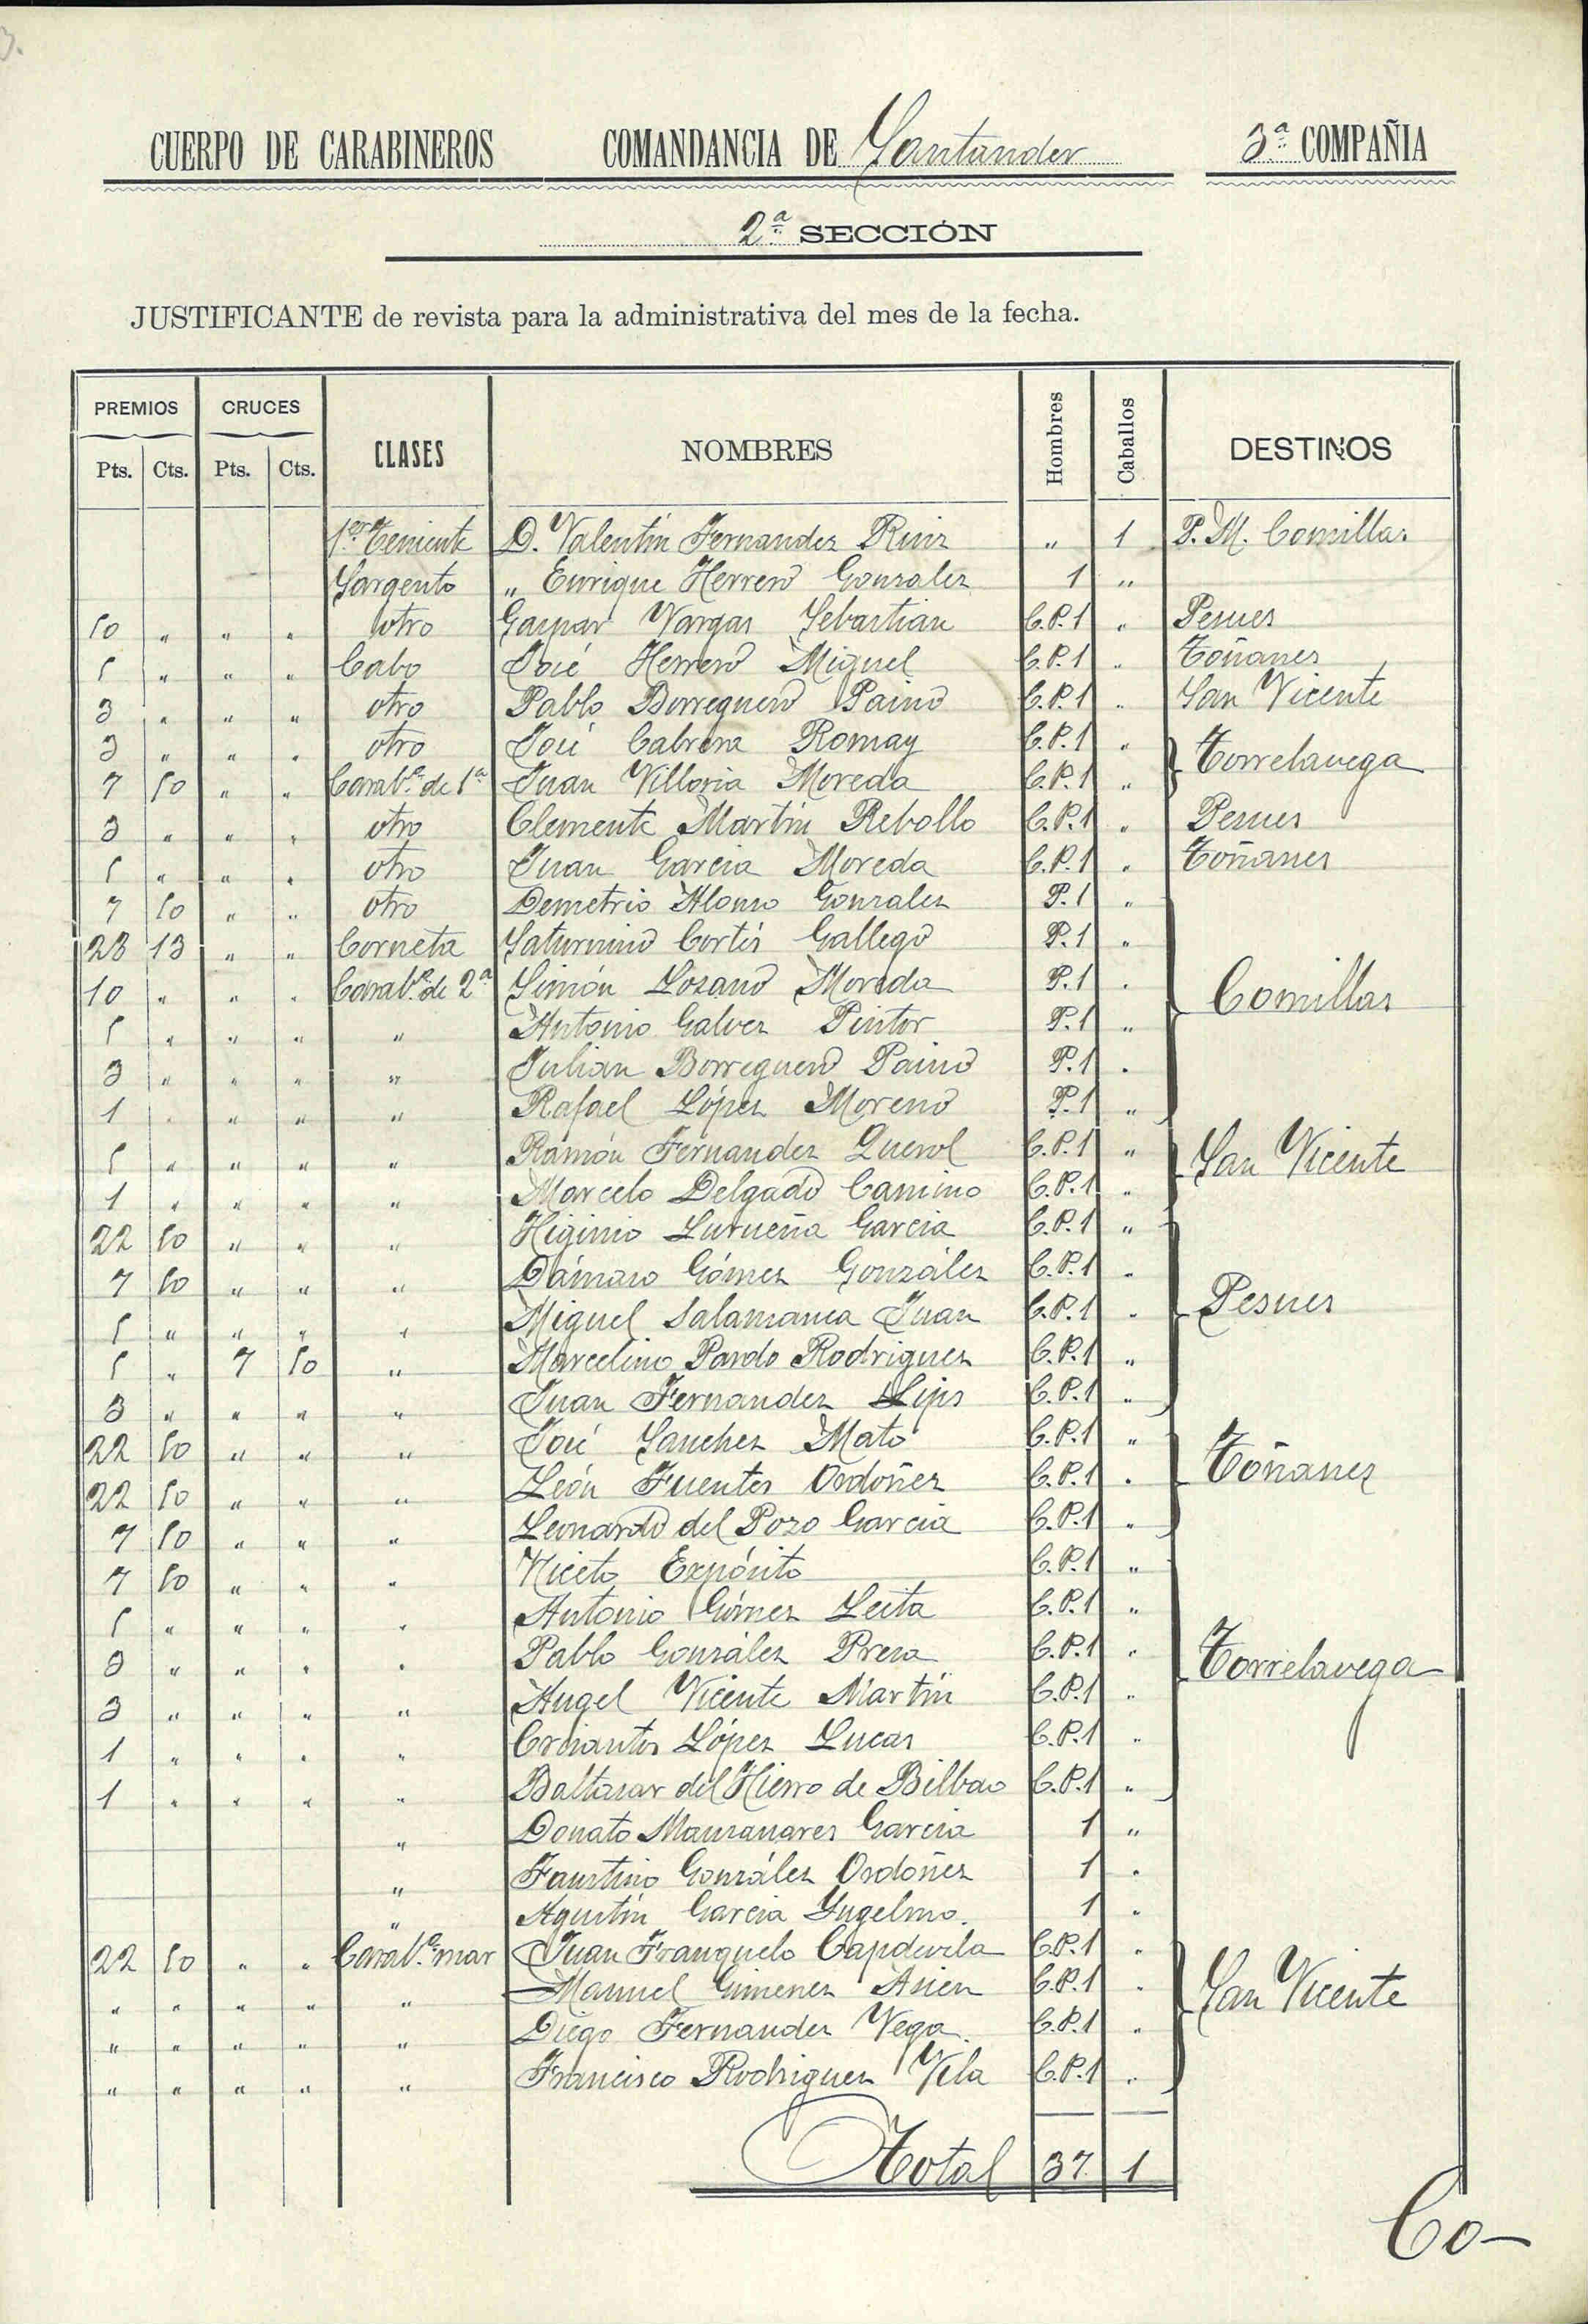 CUERPO DE CARABINEROS COMANDANCIA DE Santander 3ª COMPAÑIA
2ª SECCIÓN
JUSTIFICANTE de revista para la administrativa del mes de la fecha.
PREMIOS CRUCES CLASES NOMBRES Hombres Caballos DESTINOS
Pts. Cts. Pts. Cts.
1er Teniente D. Valentín Fernandez Ruiz " 1 P. M. Comillas
Sargento " Enrique Herrero Gonzalez 1 "
10 " " " otro Gaspar Vargas Sebastian C.P.1 " Pesues
5 " " " Cabo José Herrero Miguel C.P.1 " Toñanes
3 " " " otro Pablo Borreguero Paino C.P.1 " San Vicente
3 " " " otro José Cabrera Romay C.P.1 " Torrelavega
7 50 " " Carabº de 1ª Juan Villoria Moreda C.P.1 "
3 " " " otro Clemente Martín Rebollo C.P.1 " Pesues
5 " " " otro Juan Garcia Moreda C.P.1 " Toñanes
7 50 " " otro Demetrio Alonso Gonzalez P.1 "
28 13 " " Corneta Saturnino Cortés Gallego P.1 "
10 " " " Carabº de 2ª Simón Lozano Moreda P.1 " Comillas
5 " " " " Antonio Galvez Pintor P.1 "
3 " " " " Julian Borreguero Paino P.1 "
1 " " " " Rafael López Moreno P.1 "
5 " " " " Ramón Fernandez Querol C.P.1 " San Vicente
1 " " " " Marcelo Delgado Camino C.P.1 "
22 50 " " " Higinio Lurueña Garcia C.P.1 "
7 50 " " " Dámaso Gómez González C.P.1 "
5 " " " " Miguel Salamanca Juan C.P.1 " Pesues
5 " 7 50 " Marcelino Pardo Rodriguez C.P.1 "
3 " " " " Juan Fernandez C.P.1 "
22 50 " " " José Sanchez Mato C.P.1 "
22 50 " " " León Fuentes Ordoñez C.P.1 " Toñanes
7 50 " " " Leonardo del Pozo Garcia C.P.1 "
7 50 " " " Niceto Expósito C.P.1 "
5 " " " " Antonio Gómez Leita C.P.1 "
3 " " " " Pablo González Presa C.P.1 " Torrelavega
3 " " " " Angel Vicente Martín C.P.1 "
1 " " " " López Lucas C.P.1 "
1 " " " " Baltasar del Hierro de Bilbao C.P.1 "
" Donato Manzanares Garcia 1 "
" Faustino González Ordoñez 1 "
" Agustín Garcia Yugelmo. 1 "
22 50 " " Carabº mar Juan Franquelo Capdevila C.P.1 "
" " " " " Manuel Gimenez Asien C.P.1 " San Vicente
" " " " " Diego Fernandez Vega. C.P.1 "
" " " " " Francisco Rodriguez Vila C.P.1 "
Total 37 1
Co-